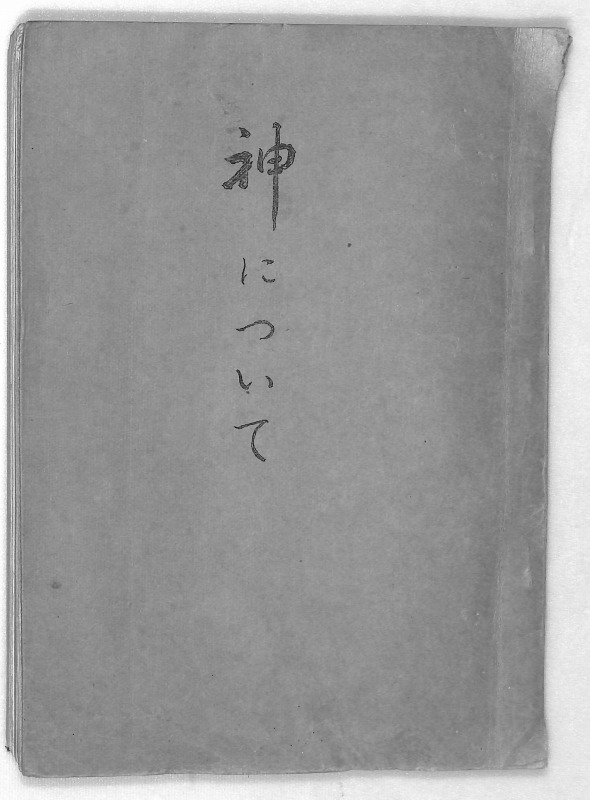 神について